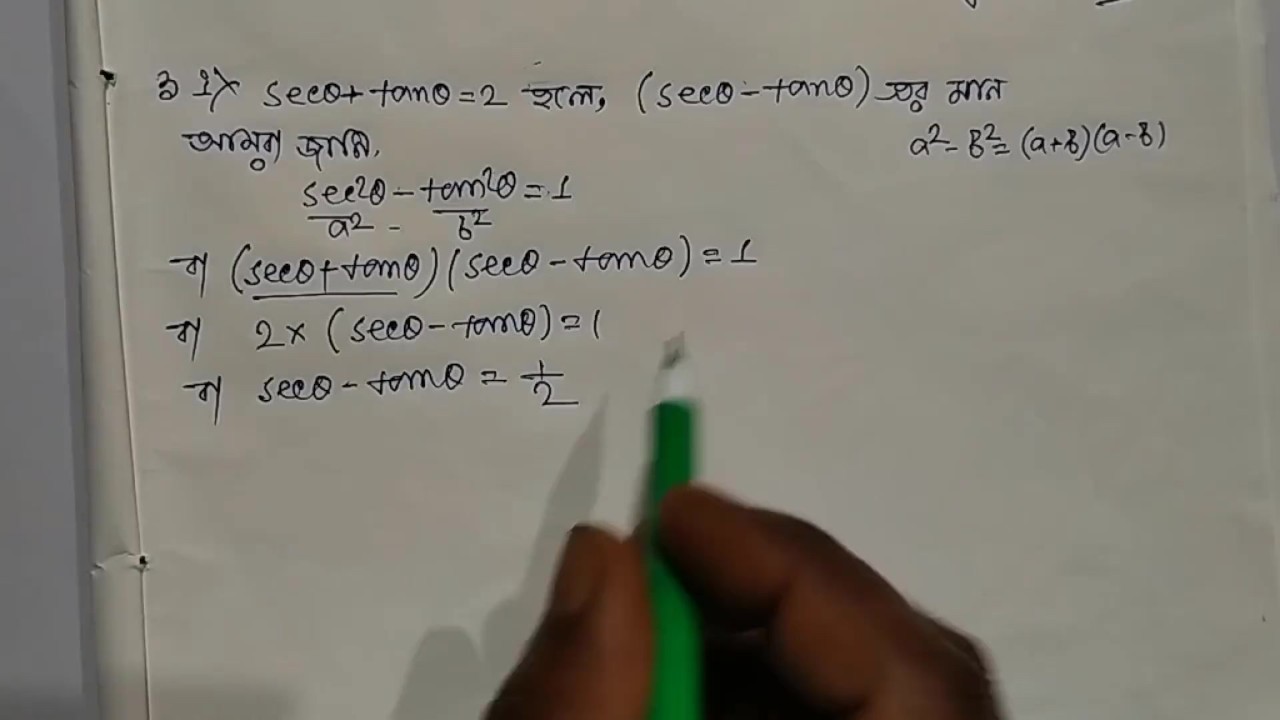 ৩ 1) secθ+tanθ=2 হলে, (secθ-tanθ) এর মান
আমরা জানি,
a²-b²=(a+b)(a-b)
sec²θ-tan²θ=1
a² - b²
বা (secθ+tanθ)(secθ-tanθ)=1
বা 2×(secθ-tanθ)=1
বা secθ-tanθ=1/2